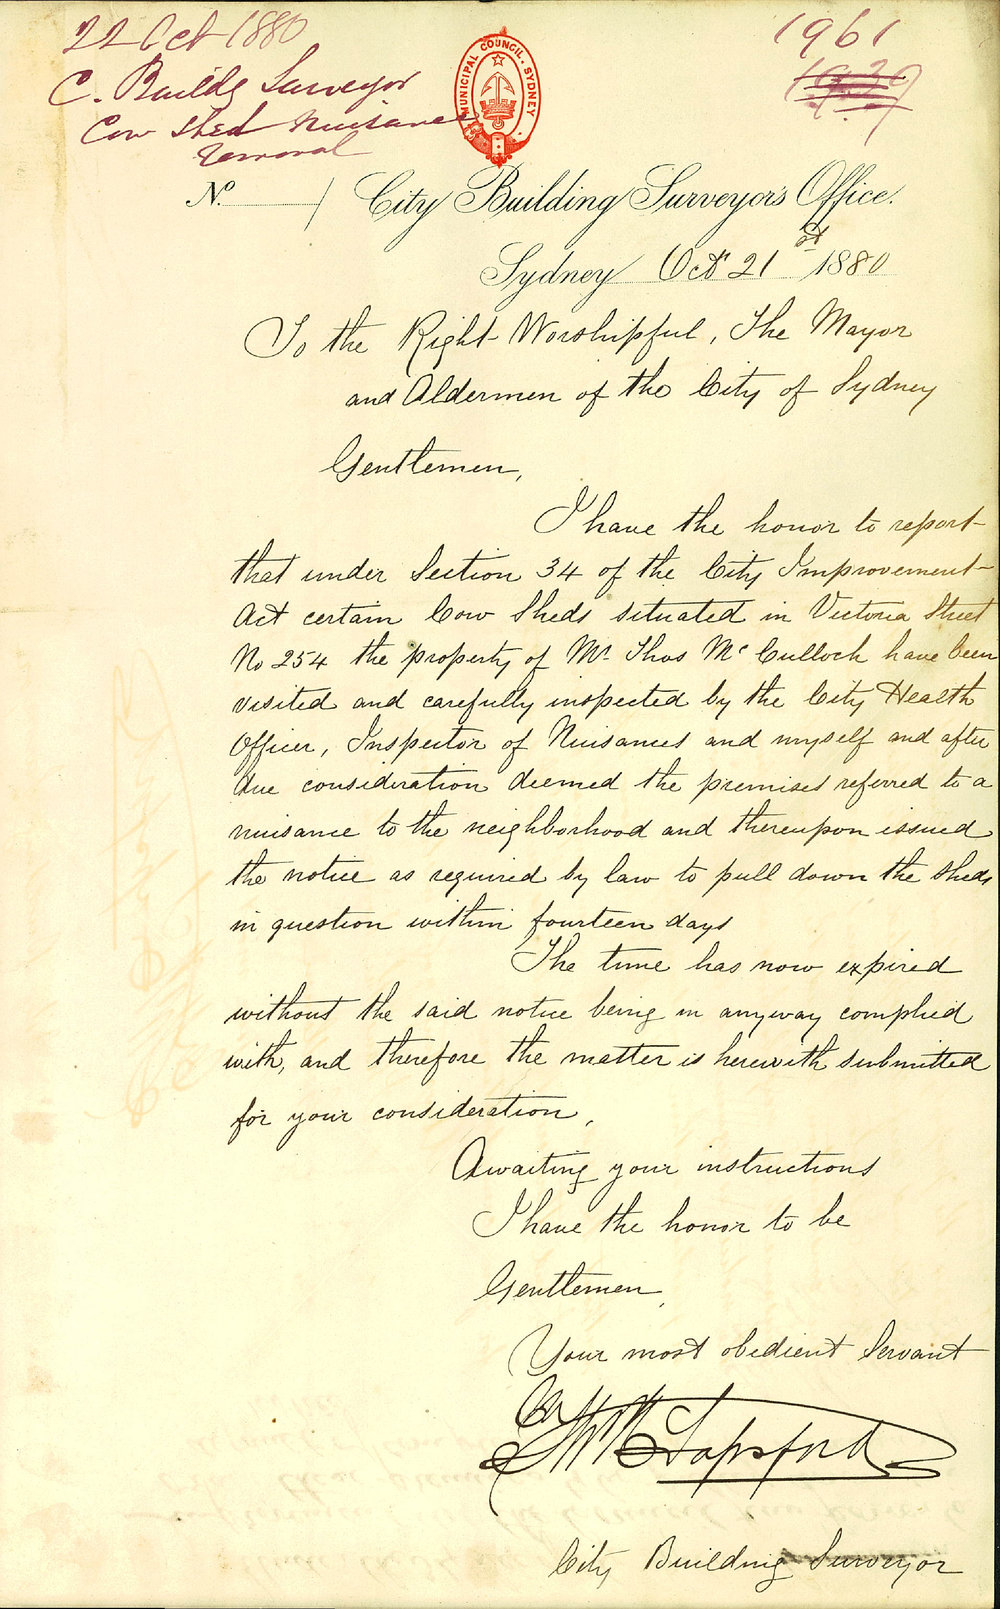 22 Oct 1880
C. Buildg Surveyor
Cow Shed Nuisance
removal
1961
1939
MUNICIPAL COUNCIL. SYDNEY
No. / City Building Surveyor's Office.
Sydney Octr 21st 1880
To the Right Worshipful, The Mayor
and Aldermen of the City of Sydney
Gentlemen,
I have the honor to report
that under Section 34 of the City Improvement
Act certain Cow Sheds situated in Victoria Street
No 254 the property of Mr. Thos McCulloch have been
visited and carefully inspected by the City Health
Officer, Inspector of Nuisances and myself and after
due consideration deemed the premises referred to a
nuisance to the neighborhood and thereupon issued
the notice as required by law to pull down the sheds
in question within fourteen days
The time has now expired
without the said notice being in anyway complied
with, and therefore the matter is herewith submitted
for your consideration,
Awaiting your instructions
I have the honor to be
Gentlemen,
Your most obedient Servant
Sapsford
City Building Surveyor